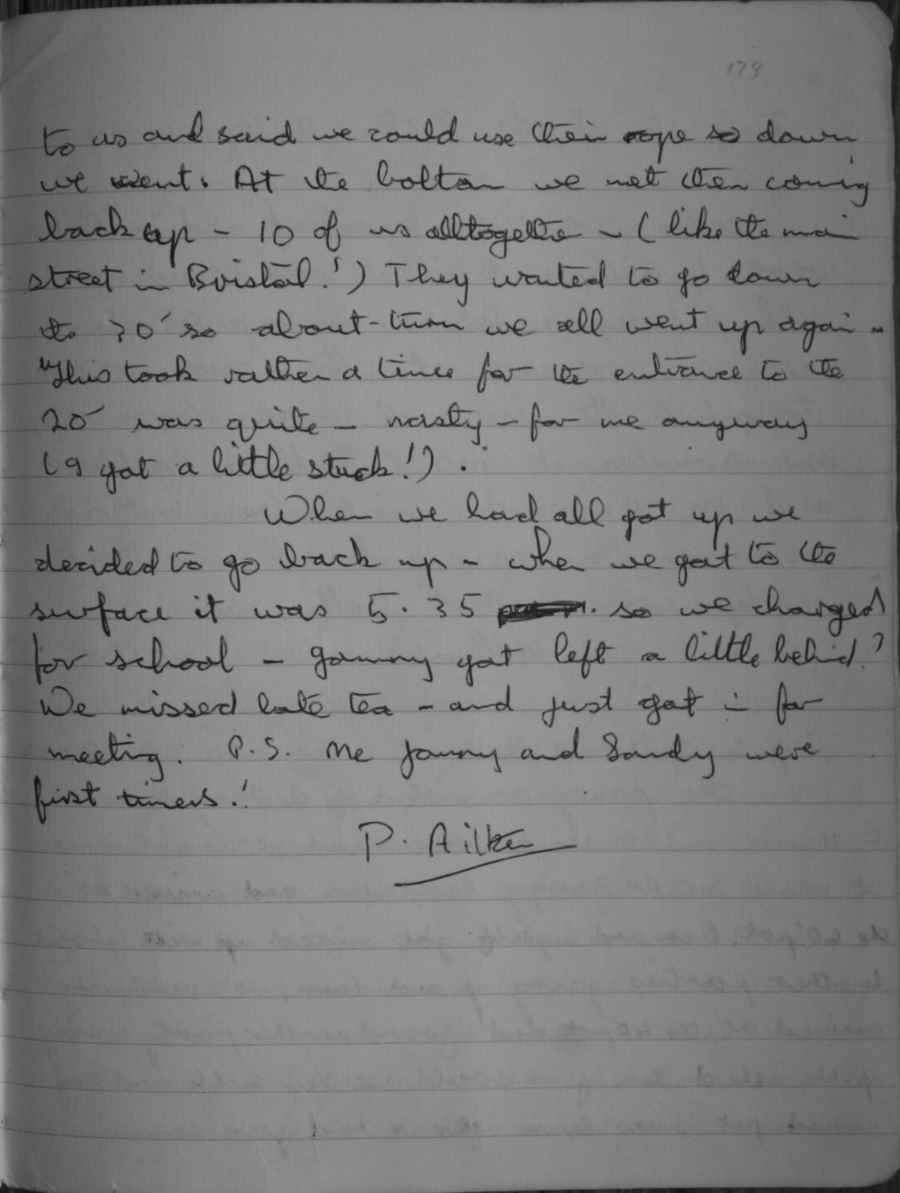 179
to us and said we could use their rope so down
we went. At the bottom we met them coming
back up - 10 of us alltogether - (like the main
street in Bristol!) They wanted to go down
the 20' so about-turn we all went up again -
This took rather a time for the entrance to the
20' was quite - nasty - for me anyway
(I got a little stuck!).
When we had all got up we
decided to go back up - when we got to the
surface it was 5.35 so we charged
for school - Jammy got left a little behind!
We missed late tea - and just got in for
meeting. P.S. Me Jammy and Sandy were
first timers!
P. Aitken